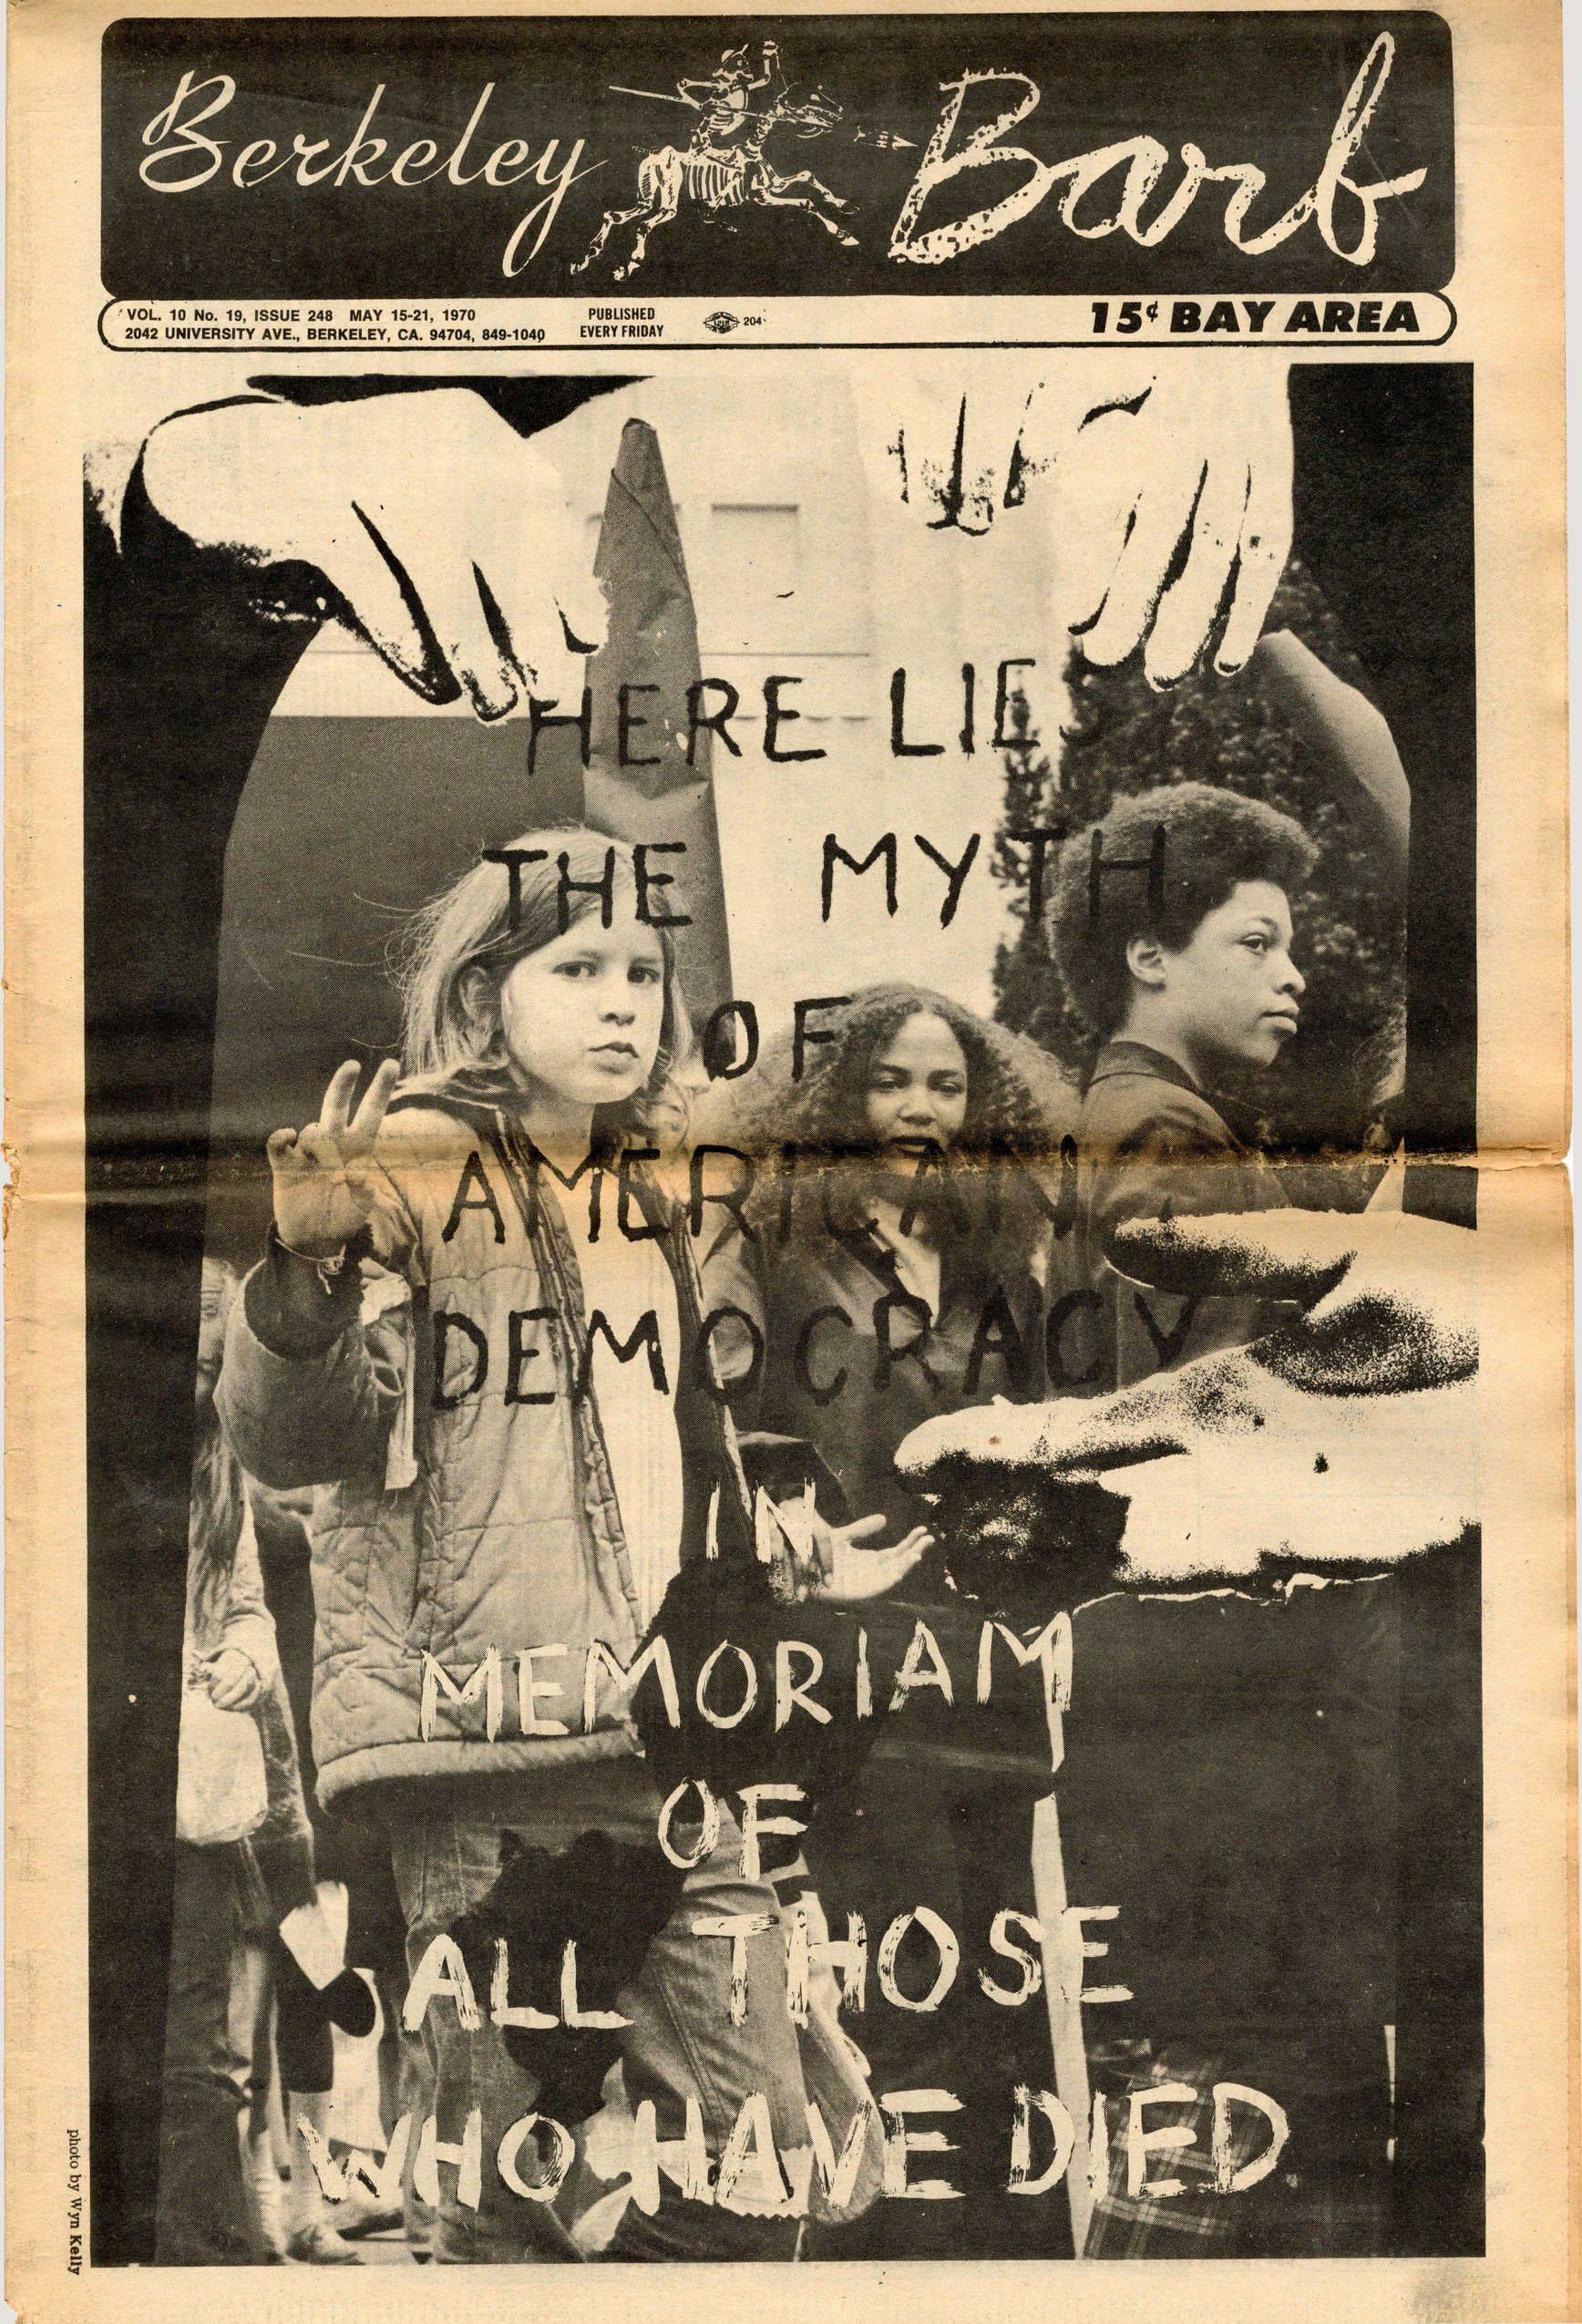 Berkeley Barb
VOL. 10 No. 19, ISSUE 248 MAY 15-21, 1970
2042 UNIVERSITY AVE., BERKELEY, CA. 94704, 849-1040
PUBLISHED
EVERY FRIDAY
204
15¢ BAY AREA
HERE LIES
THE MYTH
OF
AMERICAN
DEMOCRACY
IN
MEMORIAM
OF
ALL THOSE
WHO HAVE DIED
photo by Wyn Kelly